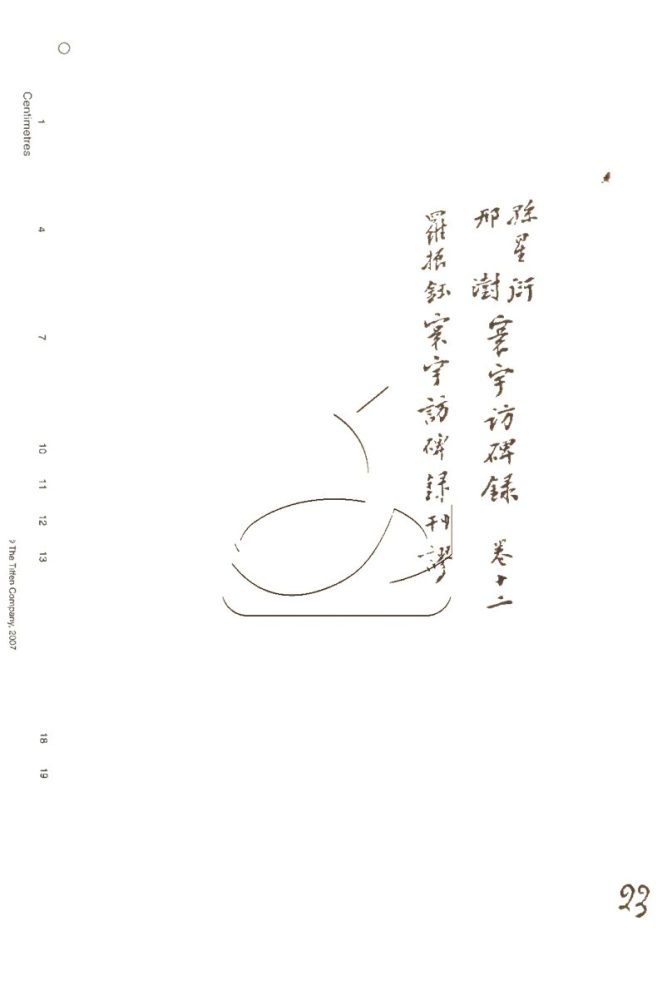 孫星衍
邢澍
寰宇访碑録 卷十二
羅振鈺寰宇訪碑録刊謬
Centimetres
1
4
7
10
11
12
13
18
19
The Tiffen Company, 2007
23